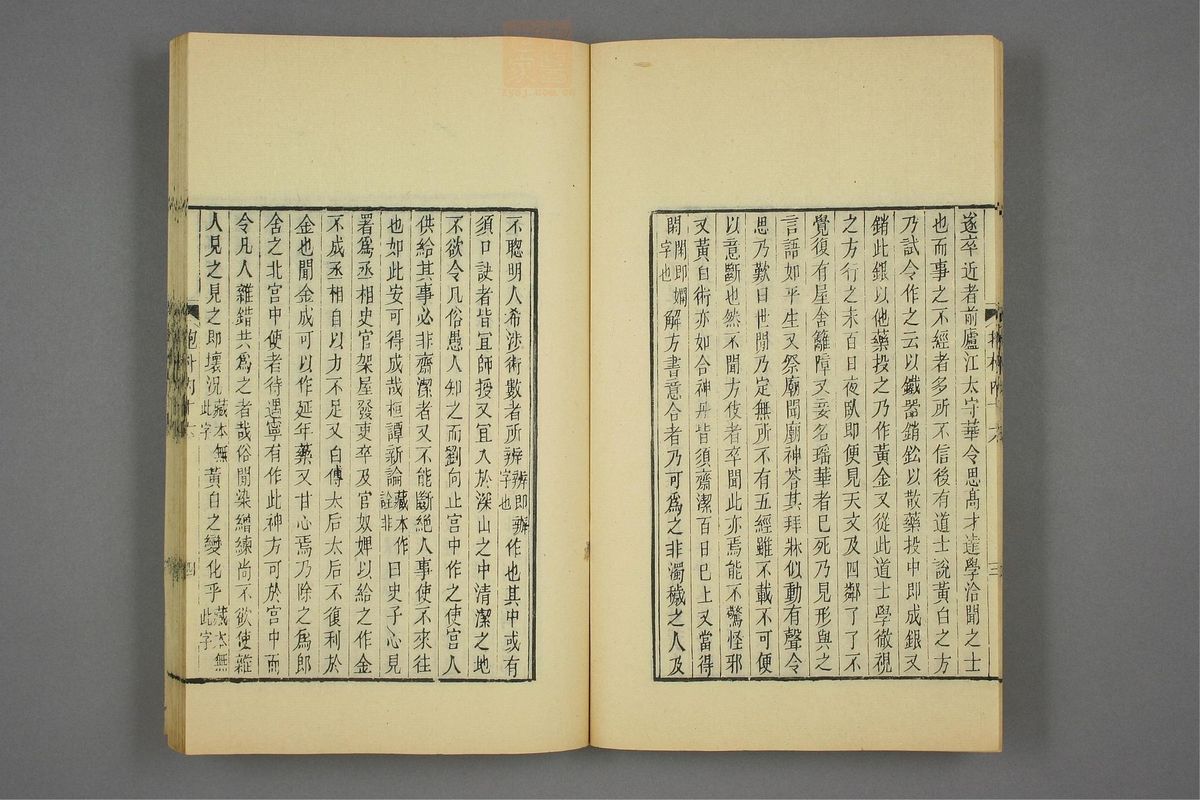 遂卒近者前廬江太守華令思髙才達學洽聞之士
也而事之不經者多所不信後有道士說黃白之方
乃試令作之云以鐵器銷鉛以散藥投中即成銀又
銷此銀以他藥投之乃作黃金又從此道士學徹視
之方行之未百日夜臥即便見天文及四鄰了了不
覺復有屋舍籬障又妾名瑶華者巳死乃見形與之
言語如平生又祭廟聞廟神荅其拜牀似動有聲令
思乃歎曰世閒乃定無所不有五經雖不載不可便
以意斷也然不聞方伎者卒聞此亦焉能不驚怪邪
又黃白術亦如合神丹皆須齋潔百日巳上又當得
閑閑即嫺字也解方書意合者乃可爲之非濁穢之人及
三
不聡明人希渉術數者所辨辨即辦字也作也其中或有
須口訣者皆宜師授又宜入於深山之中清潔之地
不欲令凡俗愚人知之而劉向止宫中作之使宫人
供給其事必非齋潔者又不能斷絕人事使不來往
也如此安可得成哉桓譚新論藏本作詮非曰史子心見
署爲丞相史官架屋發吏卒及官奴婢以給之作金
不成丞相自以力不足又白傅太后太后不復利於
金也聞金成可以作延年藥又甘心焉乃除之爲郎
舍之北宫中使者待遇寧有作此神方可於宫中而
令凡人雜錯共爲之者哉俗閒染繒練尚不欲使雜
人見之見之即壞況藏本無此字黃白之變化乎藏本無此字
四